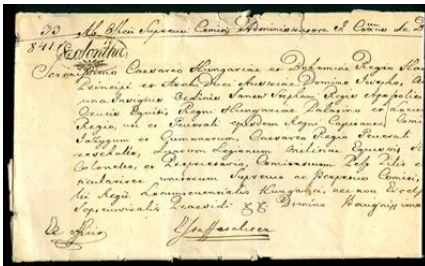 33 Ab Officii Supremi Comitis Administratore I. Cottus de B
841
Serenissimo Caesareo Hungariae et Bohemiae Regio Hae
Principi et Archi Duci Austriae Domino Josepho,
una Insignis Ordinis Sancti Stephani Regis Apostolici
Crucis Equiti Regni Hungariae Palatino et Locum
Regio, un et Generali ejusdem Regni Capitaneo, Comi
Jazygum et Cumanorum Caesareo Regio Generali
duarum Legionum Militiae Equestris
Colonello, et Proprietario, Comitatuum Pest Pilis et
ticulariter unitorum Supremo ac Perpetuo Comiti,
lii Regii Locumtenentialis Hungarici, nec non Excels
Septemviralis Praesidi Domino Benignissimo
Ex Officio